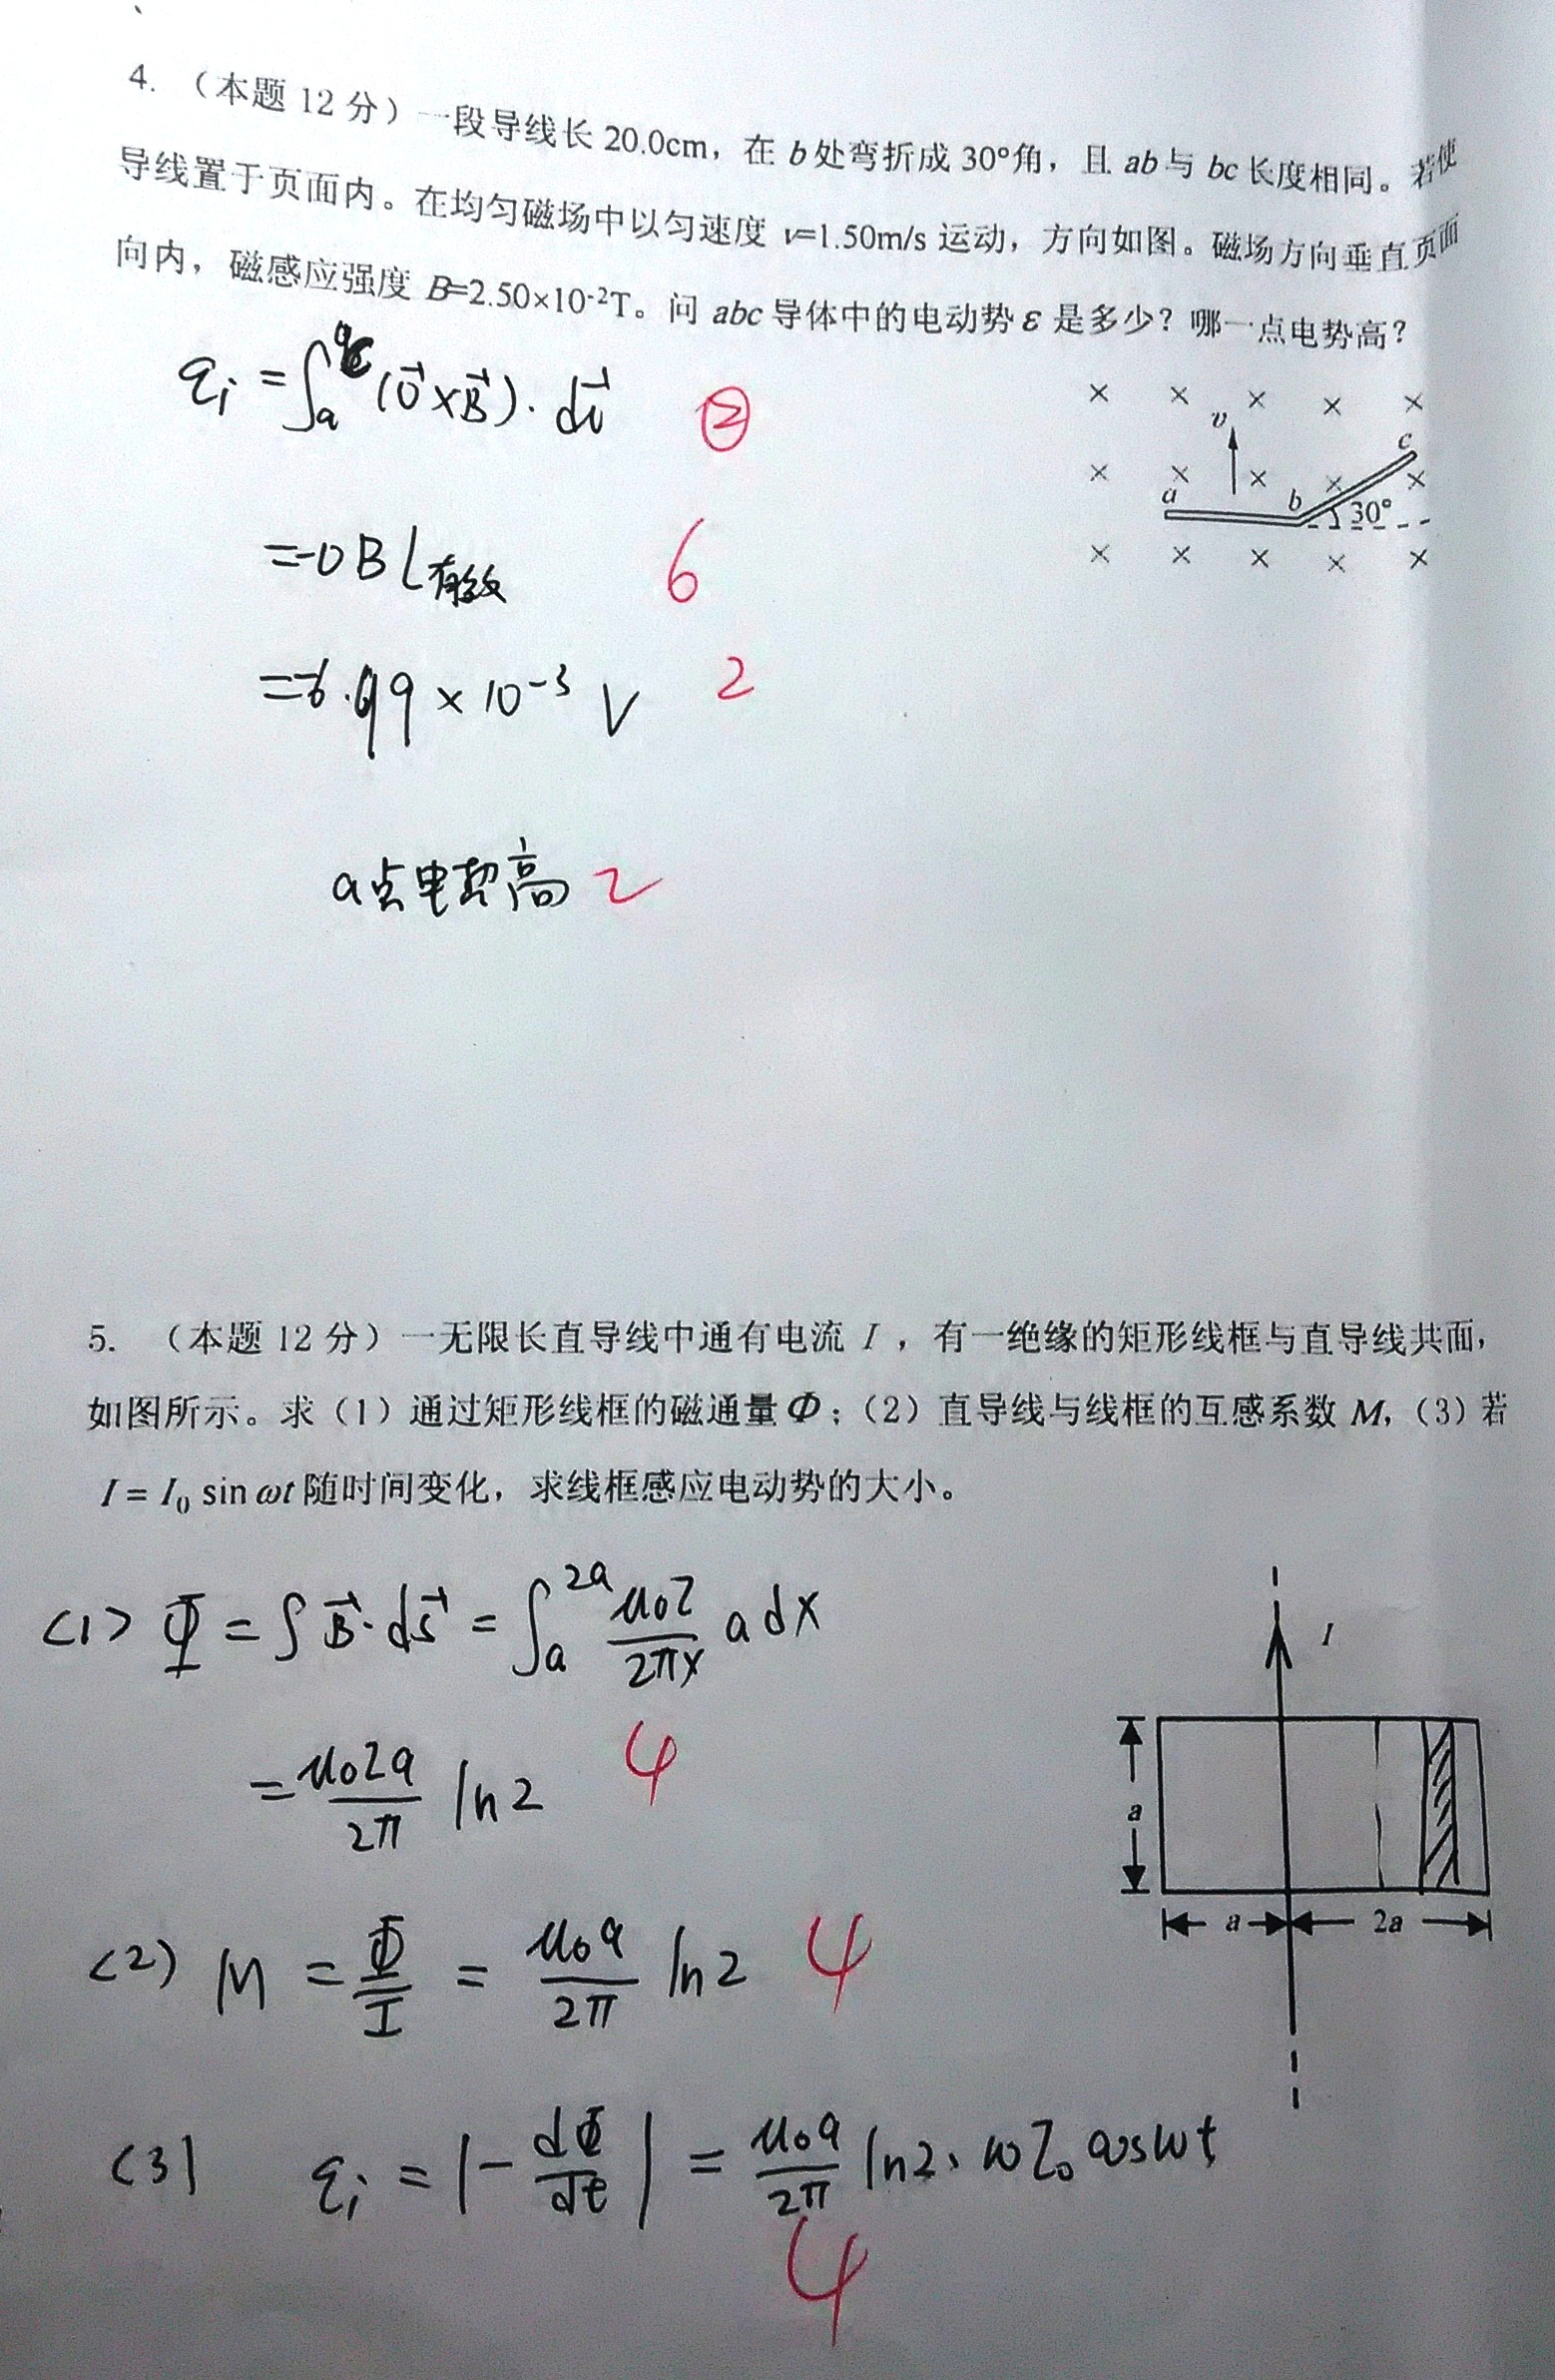 4. （本题 12 分）一段导线长 20.0cm，在 b 处弯折成 30°角，且 ab 与 bc 长度相同。若使
导线置于页面内。在均匀磁场中以匀速度 v=1.50m/s 运动，方向如图。磁场方向垂直页面
向内，磁感应强度 B=2.50×10⁻²T。问 abc 导体中的电动势 ε 是多少？哪一点电势高？
× × × × ×
v
c
× × × × ×
a
b
30°
× × × × ×
= -υBL有效
6
= -6.99 × 10⁻³ V
2
a点电势高
2
5. （本题 12 分）一无限长直导线中通有电流 I ，有一绝缘的矩形线框与直导线共面，
如图所示。求（1）通过矩形线框的磁通量 Φ；（2）直导线与线框的互感系数 M,（3）若
I = I₀ sin ωt 随时间变化，求线框感应电动势的大小。
(1) Φ = ∫ B⃗·dS⃗ = ∫ₐ²ᵃ μ₀I/2πx a dx
= μ₀Ia/2π ln2
4
I
a
a
2a
(2) M = Φ/I = μ₀a/2π ln2
4
(3) εᵢ = |-dΦ/dt| = μ₀a/2π ln2·ωI₀ cosωt
4